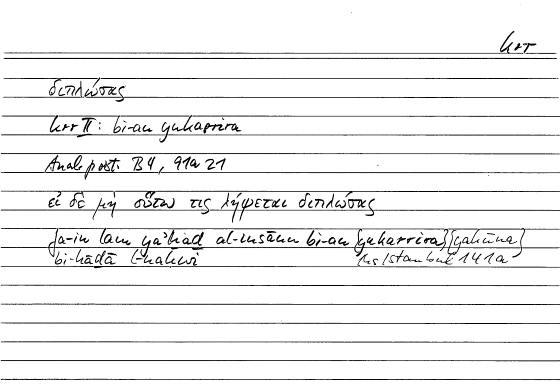 krr
διπλώσας
krr II: bi-an yukarrira
Anal. post. B 4, 91a 21
εἰ δὲ μὴ οὕτω τις λήψεται διπλώσας
fa-in lam yaʾḫuḏ al-insānu bi-an {yukarrira} {yakūna}
bi-hāḏā l-naḥwi Hs Istanbul 141a